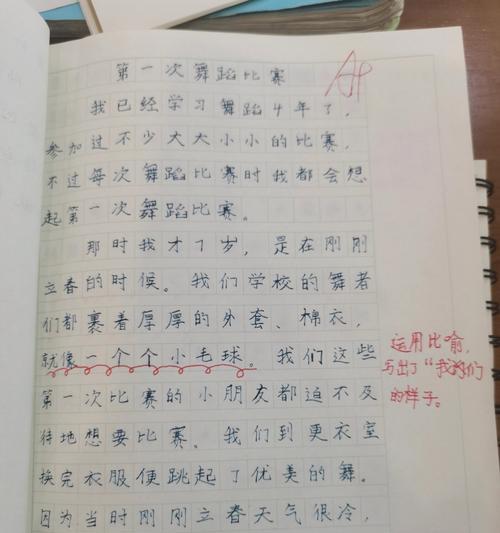 第一次舞蹈比赛
我已经学习舞蹈4年了，
参加过不少大大小小的比赛，
不过每次舞蹈比赛时我都会想
起第一次舞蹈比赛。
那时我才7岁，是在刚刚
立春的时候。我们学校的舞者
们都裹着厚厚的外套、棉衣，
就像一个个小毛球。我们这些
第一次比赛的小朋友都迫不及
待地想要比赛。我们到更衣室
换完衣服便跳起了优美的舞。
因为当时刚刚立春天气很冷，
运用比喻，
写出了“我们
的样子。